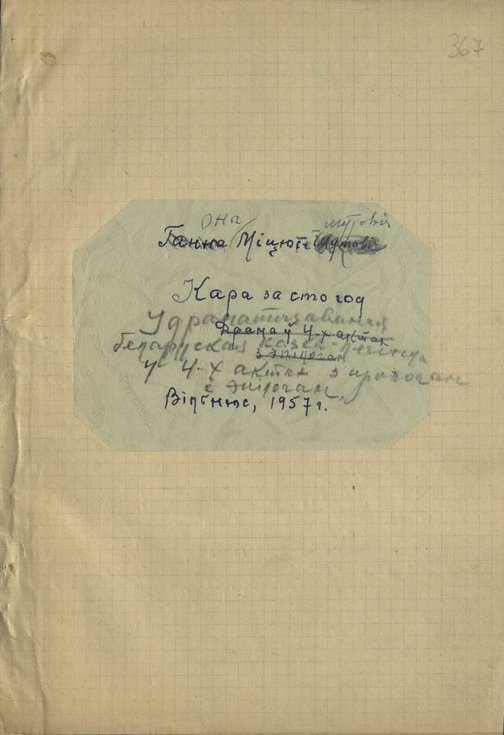 367
она
Ганна Міцют
Кара за сто год
Удраматызаваная
Драма ў 4-х актах
беларуская казка-легенда
з эпілогам
у 4-х актах з прологам
і эпілогам.
Вільнюс, 1957 г.